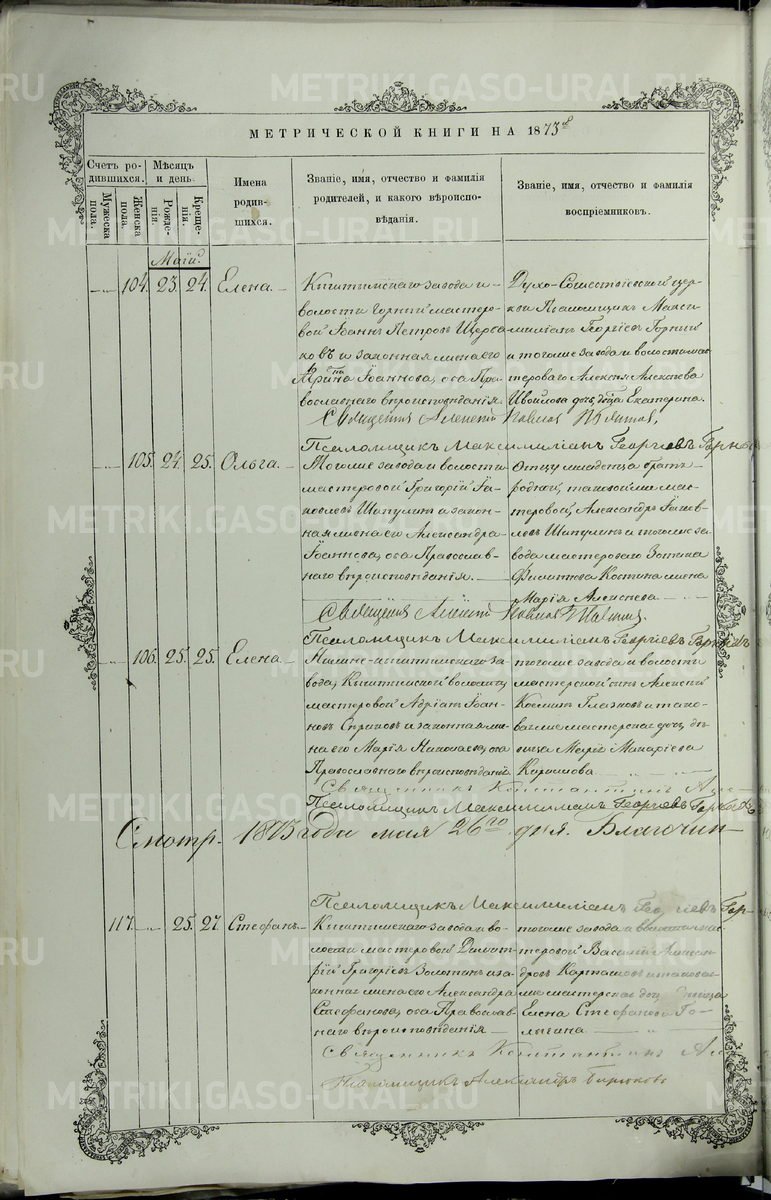 METRIKI.GASO-URAL.RU
МЕТРИЧЕСКОЙ КНИГИ НА 1873й
Счетъ ро-
дившихся.
Мужеска
пола.
Женска
пола.
Мѣсяцъ
и день.
Рожде-
нія.
Креще-
нія.
Имена
родив-
шихся.
Званіе, имя, отчество и фамилія
родителей, и какого вѣроиспо-
вѣданія.
Званіе, имя, отчество и фамилія
воспріемниковъ.
Маій
104. 23. 24. Елена.
Кыштымскаго завода и
волости горный мастеро-
вой Іоаннъ Петровъ Щерба
ковъ и законная жена его
Ирина Іоаннова, оба Пра-
вославнаго вѣроисповѣданія.
Духо-Сошественской цер-
кви Псаломщикъ Макси
миліанъ Георгіевъ Горный
и тогоже завода и волости мас
тероваго Алексія Алексѣева
дочь, дѣвица Екатерина.
Священникъ Алексій
Псаломщикъ Максимиліанъ Георгіевъ
105. 24. 25. Ольга.
Тогоже завода и волости
мастеровой Григорій Іа-
ковлевъ Шапулинъ и закон-
ная жена его Александра
Іоаннова, оба Православ-
наго вѣроисповѣданія.
Отцу младенца братъ
родной, таковой же мас-
теровой, Александръ Іаков-
левъ Шапулинъ и тогоже за-
вода мастероваго Зотика
Филатова Костина жена
Марія Алексѣева
Священникъ Алексій
Псаломщикъ Максимиліанъ Георгіевъ
106. 25. 25. Елена
Нижне-кыштымскаго за
вода, Кыштымской волости
мастеровой Адріанъ Іоан-
новъ и законная же-
на его Марія Николаева, оба
Православнаго вѣроисповѣданія
тогоже завода и волости
мастерской сынъ Алексій
Космин Глазковъ и тако-
ваяже мастерская дочь дѣ-
вица Марія Макаріева
Священникъ Константинъ
Псаломщикъ Максимиліанъ Георгіевъ
Смотр. 1873 года мая 26го дня. Благочин
Псаломщикъ Максимиліанъ Георгіевъ
117. 25. 27. Стефанъ
Кыштымскаго завода и во-
лости мастеровой Димит-
рій Григоріевъ Золотинъ и за-
конная жена его Александра
Стефанова, оба Православ-
наго вѣроисповѣданія
тогоже завода и волости мас-
теровой Василій Алексан
дровъ Карташовъ и таковая
же мастерская дочь дѣвица
Елена Стефанова Го-
лыгина
Священникъ Константинъ
Псаломщикъ Александръ Бирюковъ